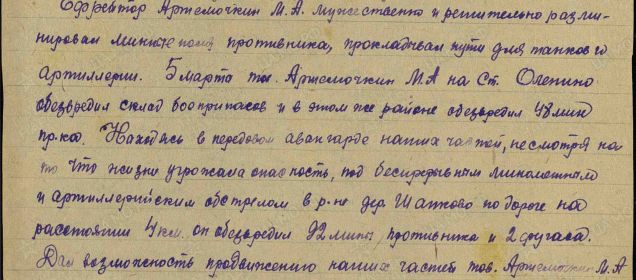 Ефрейтор Артемочкин М.А. мужественно и решительно разми-
нировал минные поля противника, прокладывал пути для танков и
артиллерии. 5 марта тов. Артемочкин М.А на ст. Оленино
обезвредил склад бооприпасов и в этом же районе обезвредил 48 мин
пр-ка. Находясь в передовом авангарде наших частей, несмотря на
то что жизни угрожала опасность, под беспрерывным минометным
и артиллерийским обстрелом в р-не дер. Шапково по дороге на
расстоянии 4 км. он обезвредил 92 мины противника и 2 фугаса.
Дал возможность продвижению наших частей тов. Артемочкин М.А